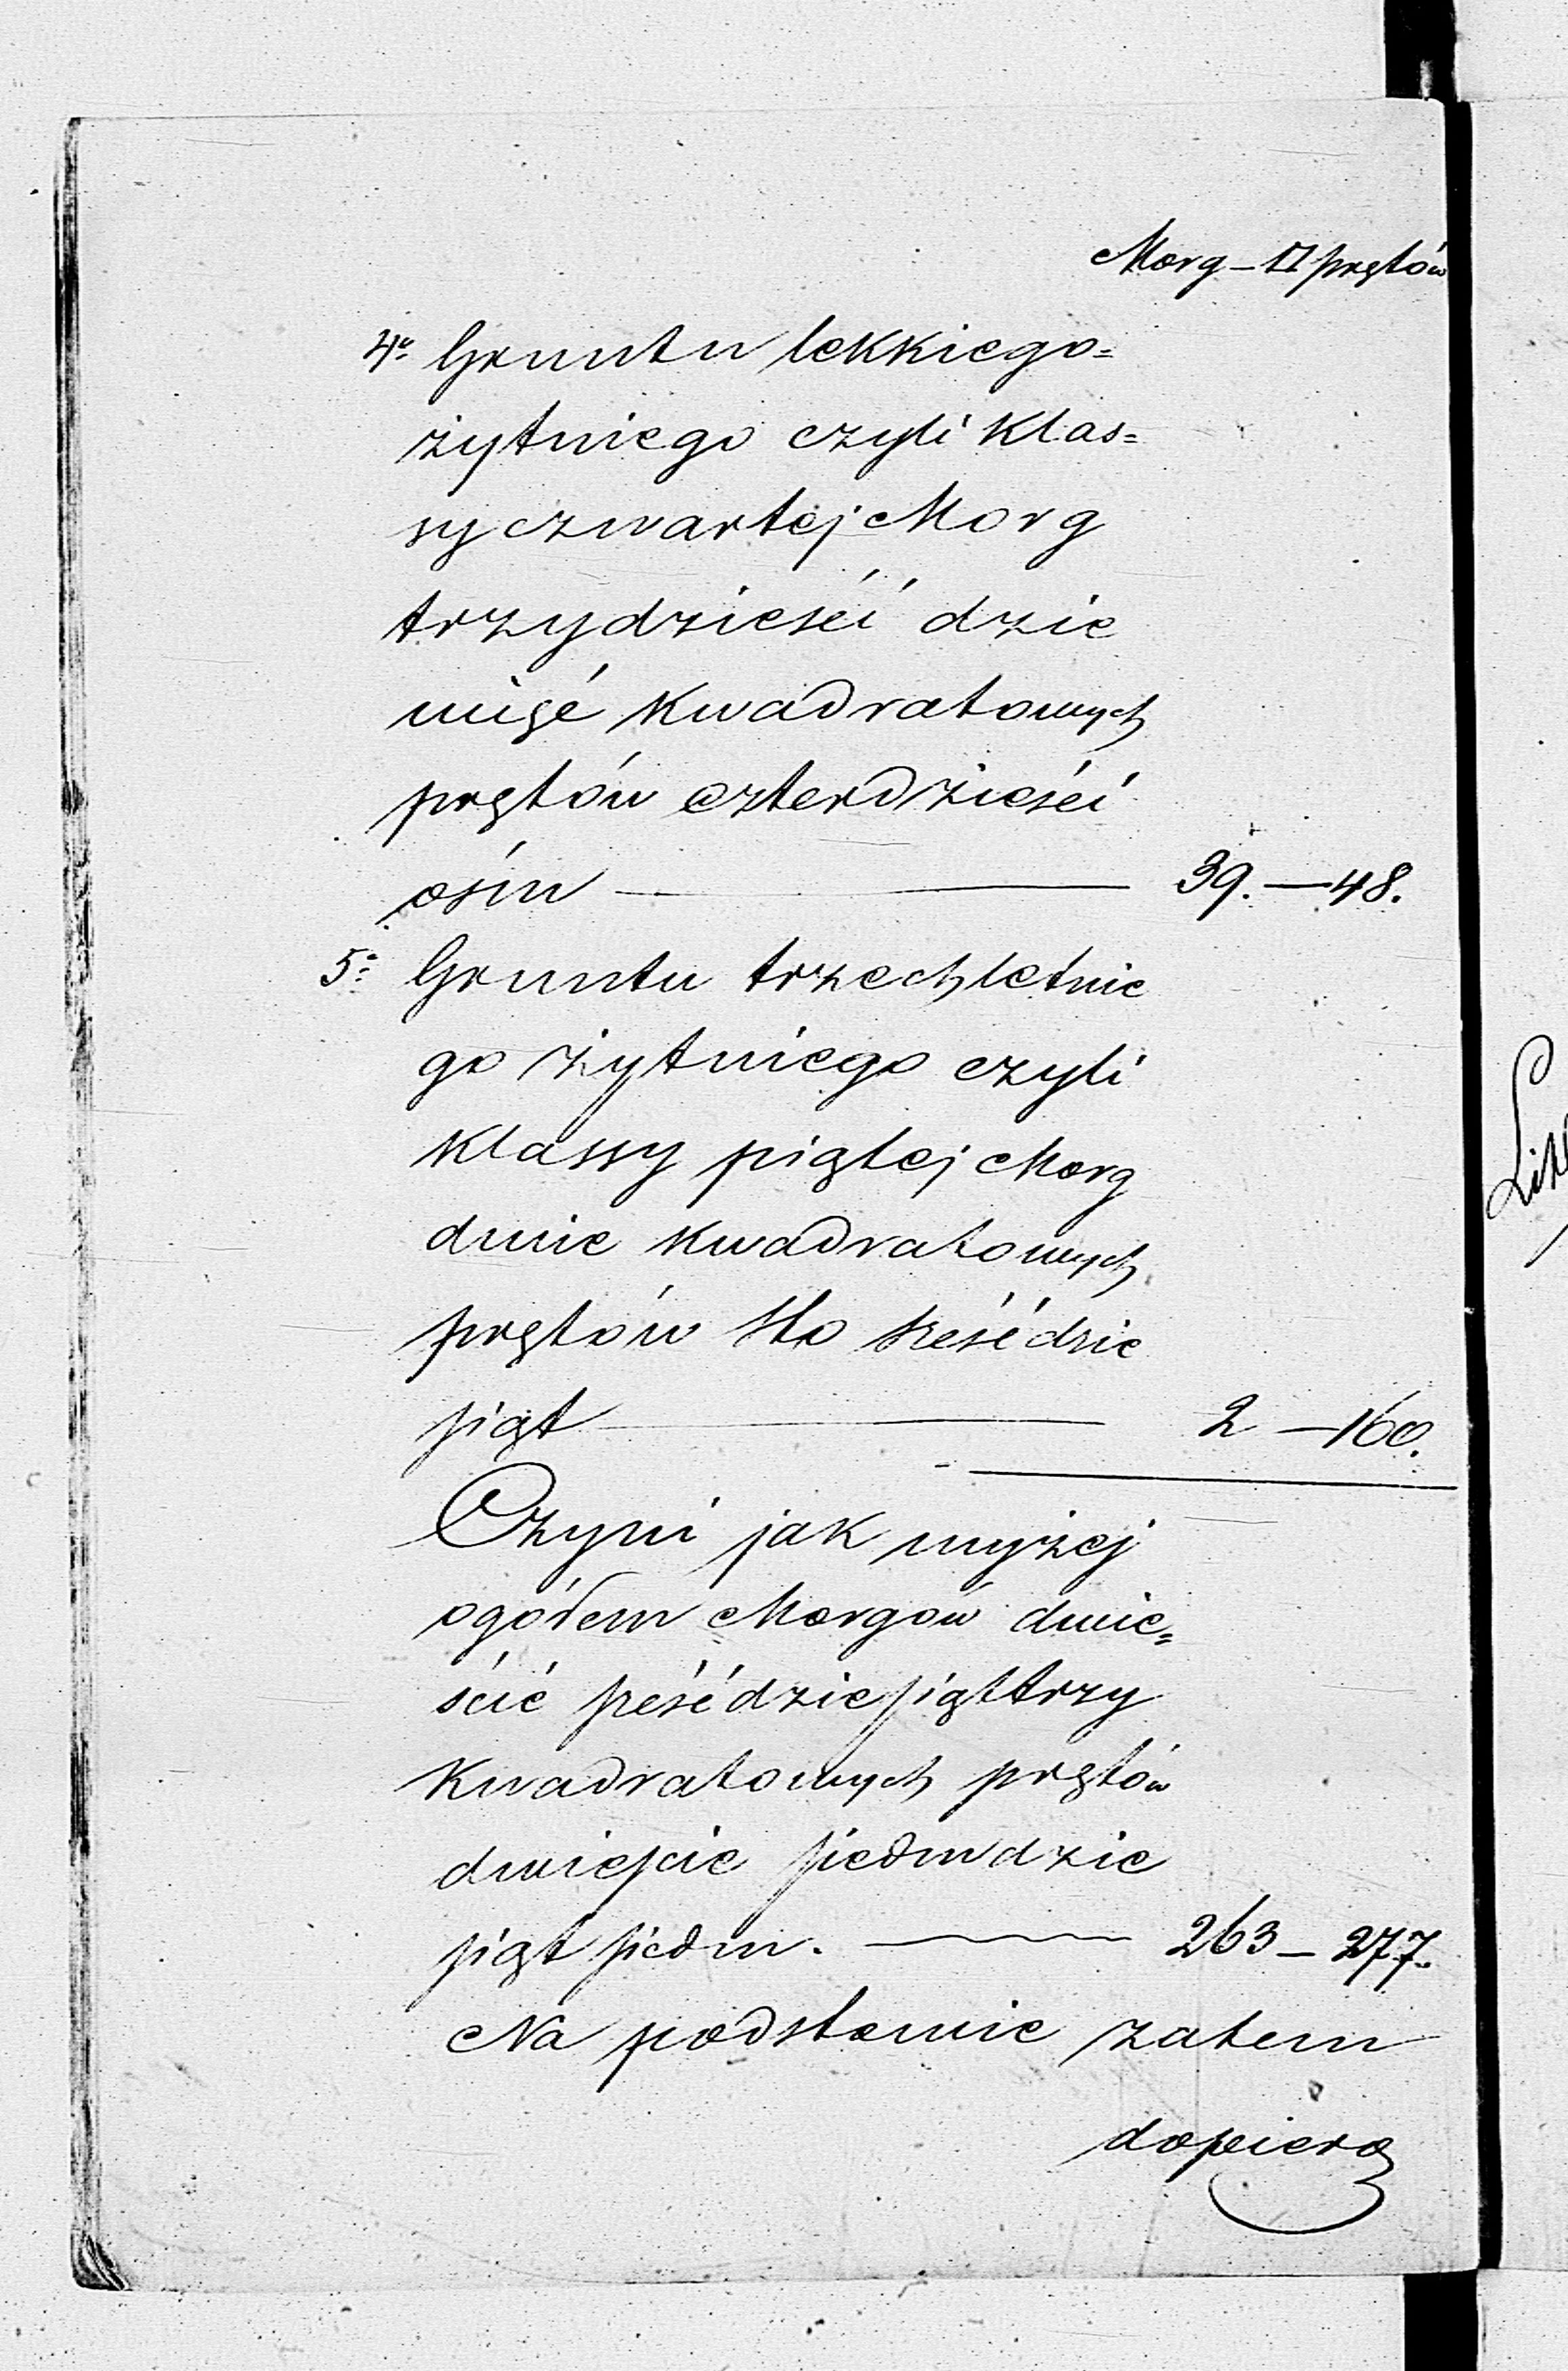 Morg – □ prętów
4º Gruntu lekkiego=
żytniego czyli klas=
sy czwartej Morg
trzydzieści dzie
więć kwadratowych
prętów czterdzieści
ośm — 39. — 48.
5º Gruntu trzechletnie
go żytniego czyli
klassy piątej Morg
dwie kwadratowych
prętów sto sześćdzie
siąt — 2 — 160.
Czyni jak wyżej
ogółem Morgów dwie=
ście sześćdziesiąt trzy
kwadratowych prętów
dwieście siedmdzie
siąt siedm. — 263 – 277.
Na podstawie zatem
dopiero